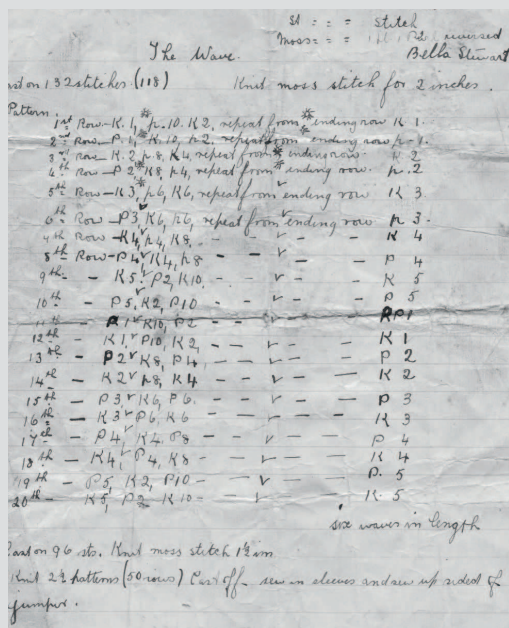 St = = = stitch
Moss = = = reversed
The Wave. Bella Stewart
Cast on 132 stitches (118) Knit moss stitch for 2 inches.
Pattern.
1st Row - K.1, * p.10. K2, repeat from * ending row K 1.
2nd Row - P.1, * K.10, p2, repeat from * ending row p-1.
3rd row - K.2 * p8, K4, repeat from * ending row p.2
4th Row - P 2 * K8, p4, repeat from * ending row p.2
5th Row - K3, p6, K6, repeat from ending row K 3
6th Row - P3, K6, p6, repeat from ending row p 3.
7th Row - K4, p4, K8, - - - ✓ - - K 4
8th Row - P4 ✓ K4, p8 - - ✓ - P 4
9th - - K5 ✓ P2, K10. - - ✓ - - K 5
10th - - P5, K2, P10 - - ✓ - - P 5
11th - - P 1 ✓ K10, P2 - - ✓ - - P1
12th - - K 1 ✓ P10, K2, - - ✓ - - K 1
13th - P2 ✓ K8, P4, - - ✓ - - P 2
14th - K2 ✓ p8, K4 - - ✓ - - K 2
15th - P3 ✓ K6, P6. - - ✓ - - P 3
16th - K3 ✓ P6, K6 - - ✓ - - K 3
17th - P4, K4. P8 - - ✓ - P 4
18th - K4, P4, K8 - - ✓ - K 4
19th - P5, K2, P10 - - ✓ - P. 5
20th - K5, P2 K10 - - ✓ - K. 5
six waves in length
Cast on 96 sts. Knit moss stitch 1½ ins
Knit 2½ patterns (50 rows) Cast off - sew in sleeves and sew up sides of
jumper.